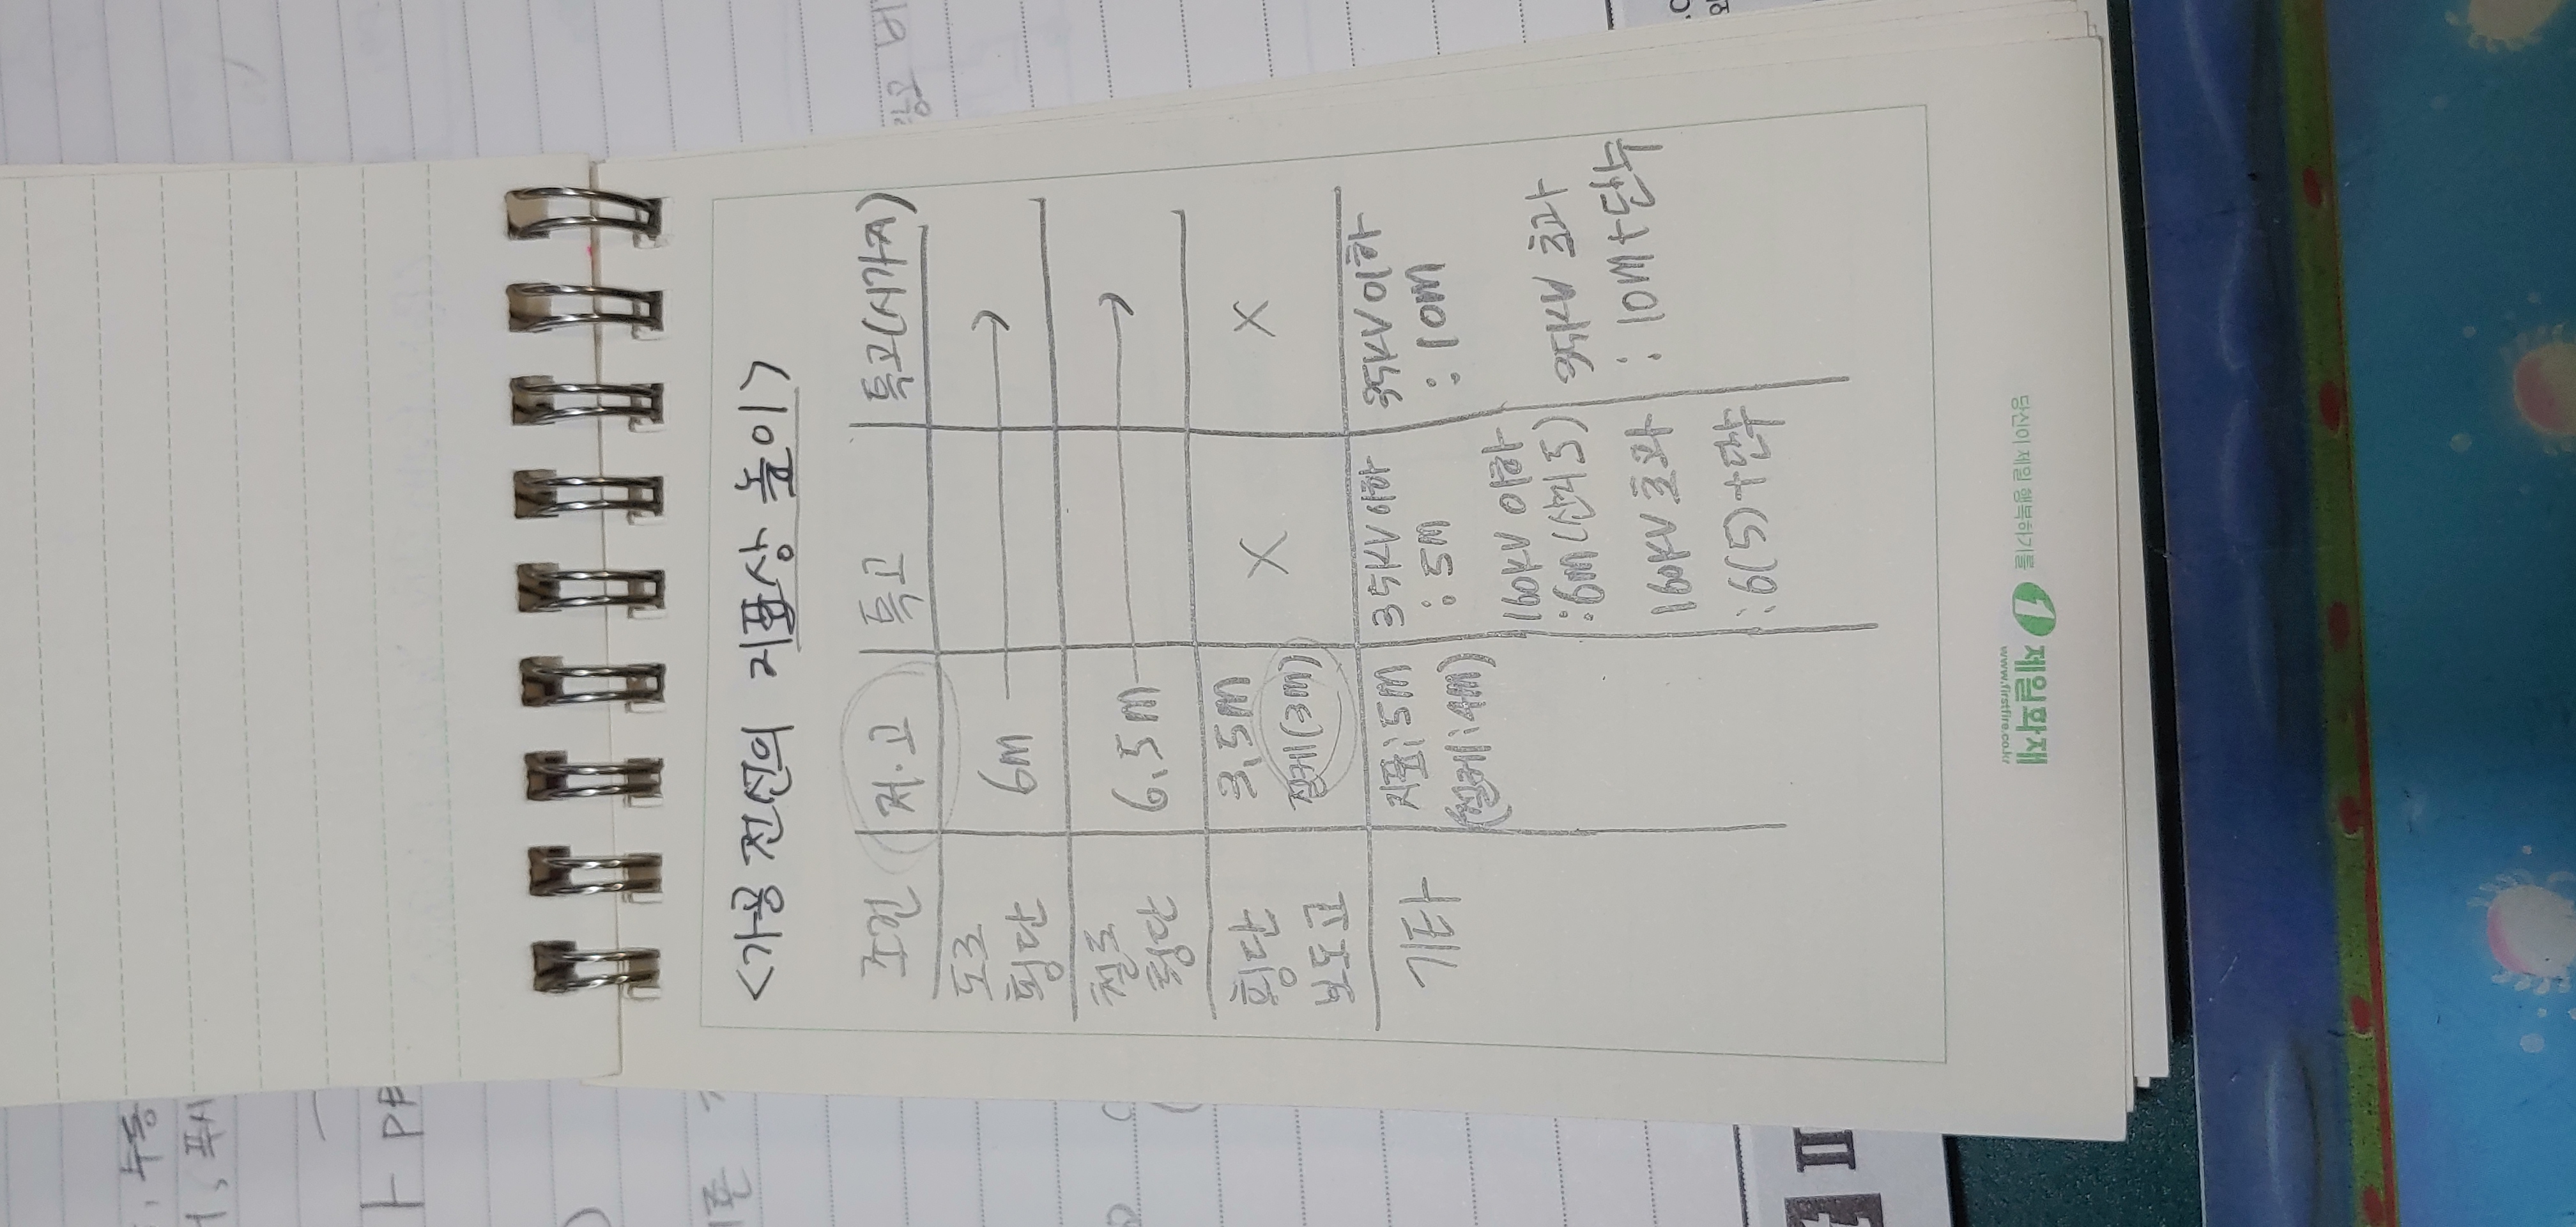 <가공 전선의 지표상 높이>
조건 저.고 특고 특고(시가지)
도로
횡단 6m
철로
횡단 6.5m
횡단
보도교 3.5m
절케(3m) X X
기타 지표:5m
(절케:4m)
35kV이하
:5m
160kV 이하
:6m(산지5)
160kV 초과
:6(5)+단수
35kV 이하
:10m
35kV 초과
:10m+단수
당신이 제일 행복하기를
제일화재
www.firstfire.co.kr